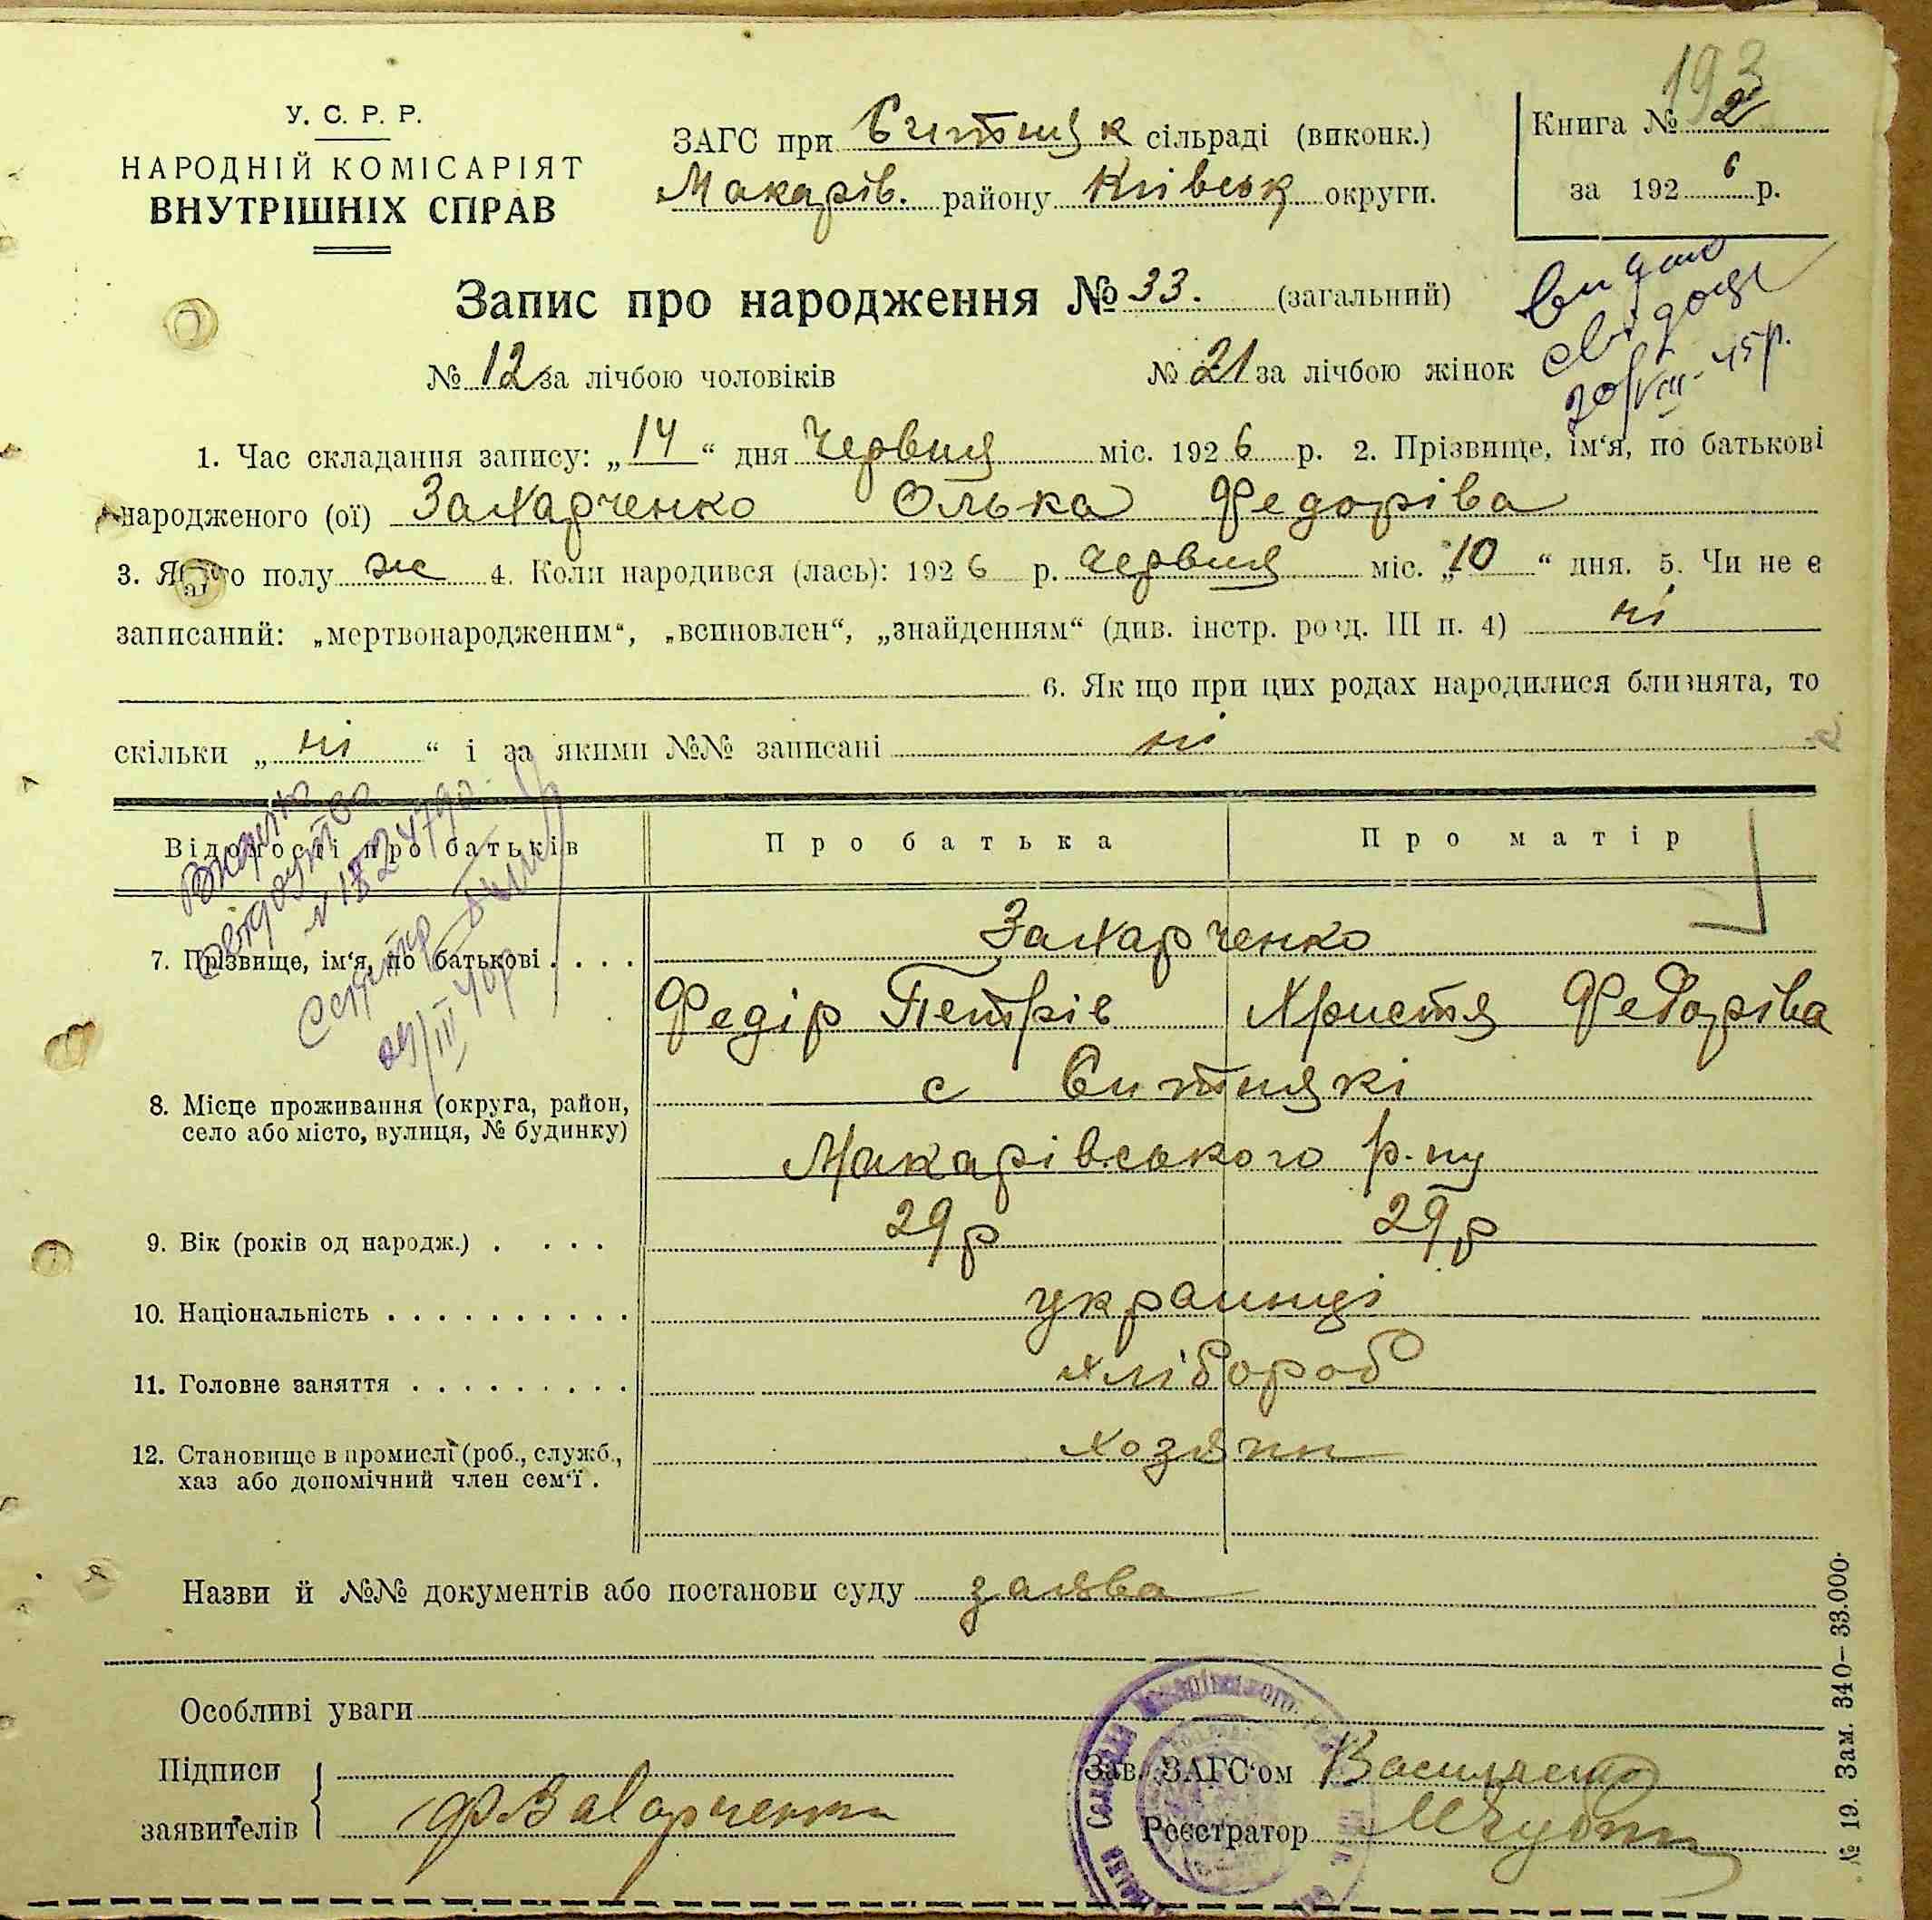 193
У. С. Р. Р.
НАРОДНІЙ КОМІСАРІЯТ
ВНУТРІШНІХ СПРАВ
ЗАГС при Ситняк сільраді (виконк.)
Макарів. району Київськ округи.
Книга № 2
за 1926 р.
Запис про народження № 33. (загальний)
видано
свідоцт
30/VIII-45р.
№ 12 за лічбою чоловіків № 21 за лічбою жінок
1. Час складання запису: „14“ дня Червня міс. 1926 р. 2. Прізвище, ім‘я, по батькові
народженого (ої) Захарченко Олька Федоріва
3. Якого полу ж 4. Коли народився (лась): 1926 р. Червня міс. „10“ дня. 5. Чи не є
записаний: „мертвонародженим“, „всиновлен“, „знайденням“ (див. інстр. розд. III п. 4) ні
6. Як що при цих родах народилися близнята, то
скільки „ні“ і за якими №№ записані ні
Відомості про батьків Про батька Про матір
7. Прізвище, ім‘я, по батькові . . . . Захарченко
Федір Петрів Христя Федоріва
8. Місце проживання (округа, район,
село або місто, вулиця, № будинку)
с Ситнякі
Макарівського р-ну
9. Вік (років од народж.) . . . . 29 р 29 р
10. Національність . . . . . . . . . . украинці
11. Головне заняття . . . . . . . . . хлібороб
12. Становище в промислі (роб., служб.,
хаз або допомічний член сем‘ї .
хозяин
Назви й №№ документів або постанови суду заява
Особливі уваги
Підписи
заявителів
Ф Захарченко
Зав. ЗАГС‘ом
Реєстратор
№ 19. Зам. 340—33.000.